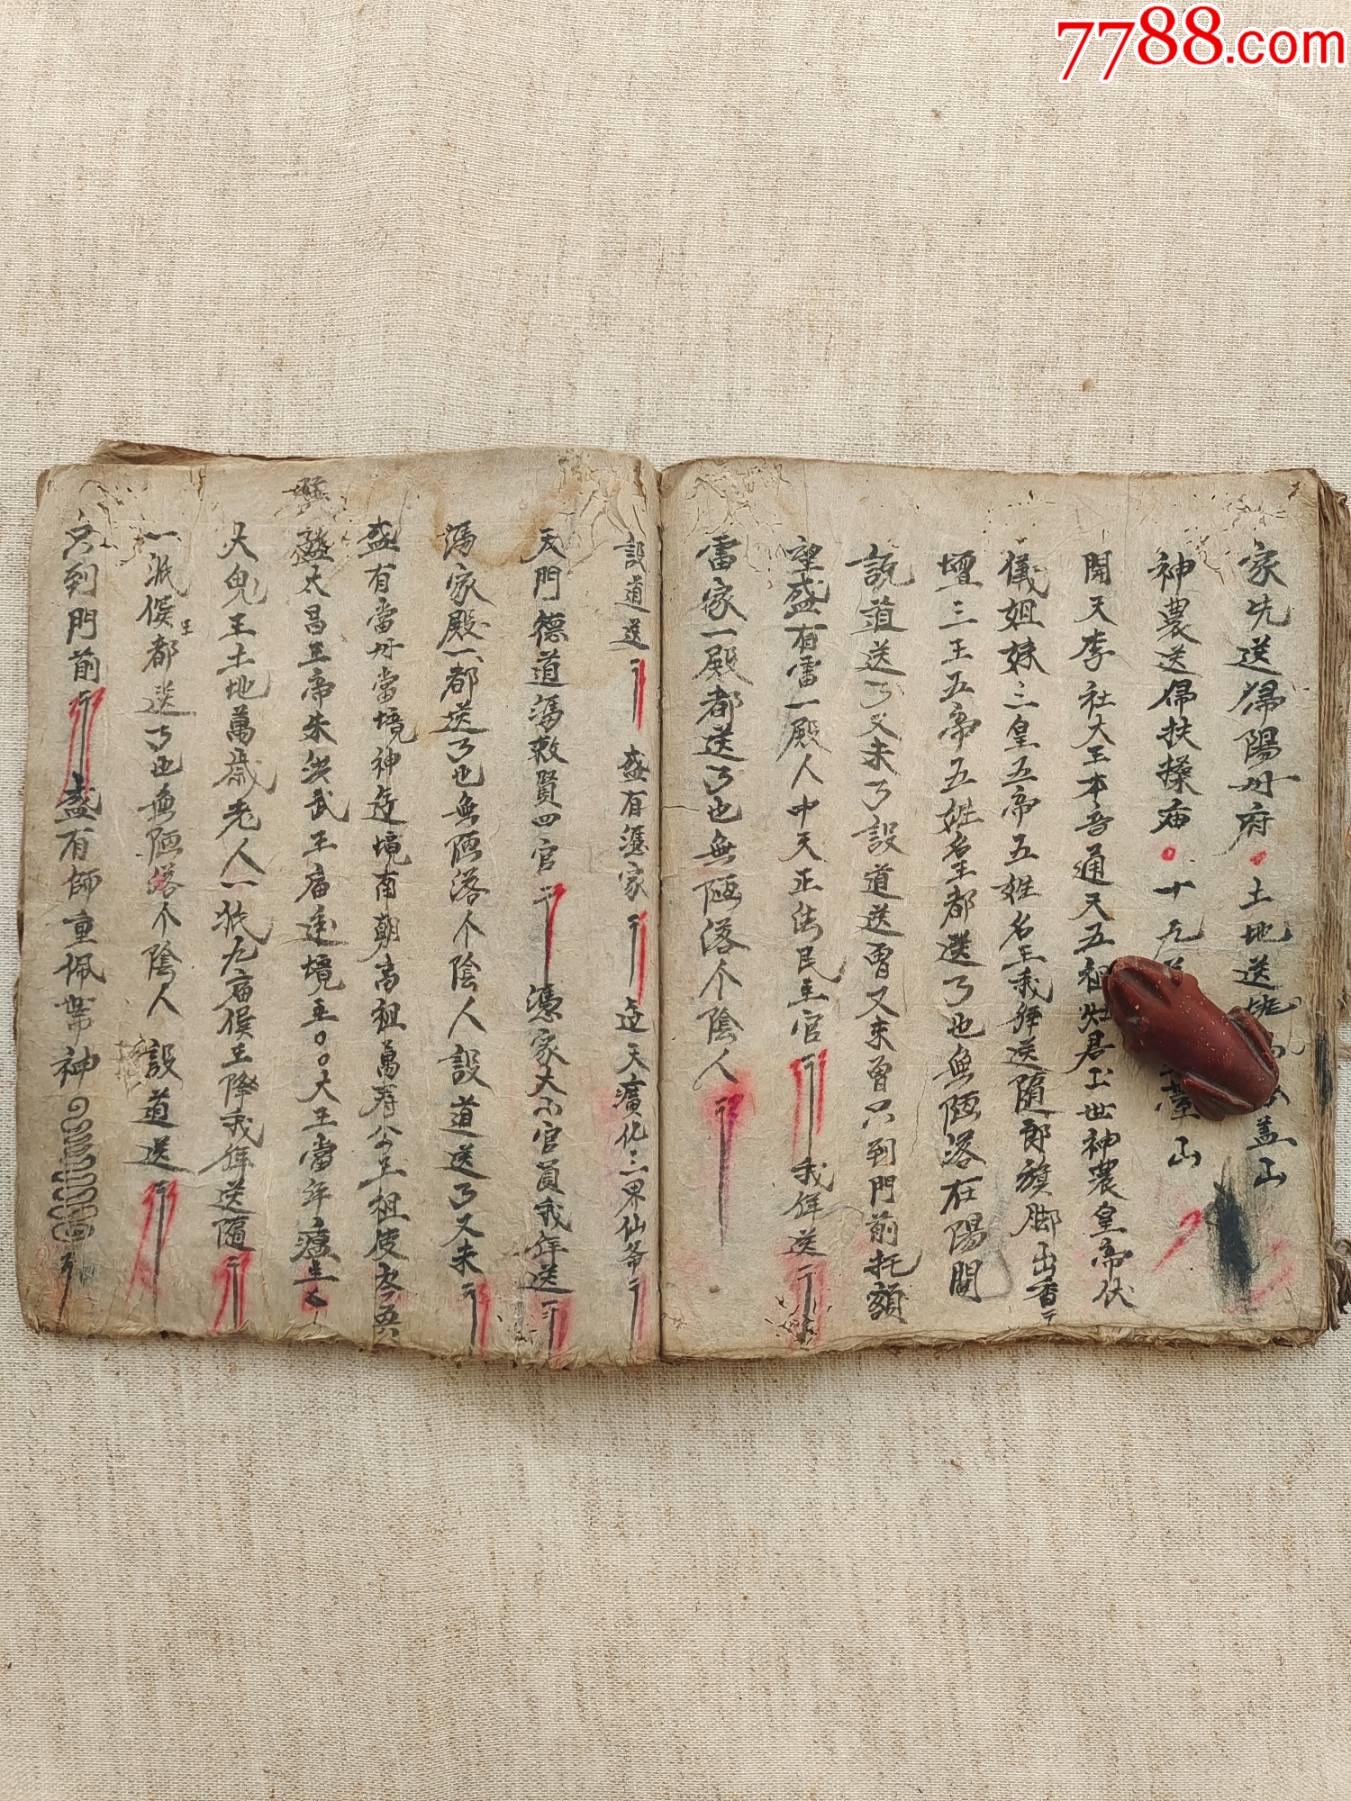 7788.com
家先送歸陽州府土地送
盖山
神農送歸扶桑庙十九
山
開天李社大王本音通天五祖灶君出世神農皇帝伏
儀姐妹三皇五帝五姓名王我年送隨郎旗脚出香
壇三王五帝五姓名王都送了也無陋落在陽間
説道送了又未了設道送曾又未曾只到門前托額
望盛有雷一殿人中天正法民主官我年送
雷家一殿都送了也無陋落个陰人
設道送盛有馮家造天廣化三界仙爷
天門德道馮敕賢四官馮家大小官員我年送
馮家殿一都送了也無陋落个陰人設道送了又未
盛有當州當境神造境南朝高祖萬寿公王祖使
盛太昌王帝朱洪武王庙造境五〇〇大王當年瘟
大鬼王土地萬歲老人一派九庙侯王降我年送隨
一派侯王都送了也無陋落个陰人設道送
只到門前盛有師重佩帶神